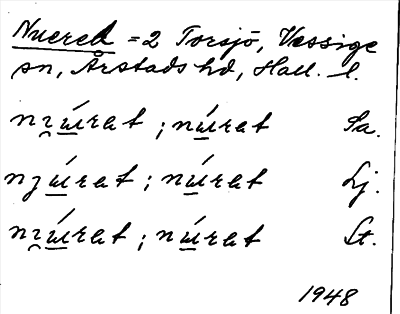 Nuered = 2 Torsjö, Vessige
sn, Årstads hd, Hall. l.
nɿ̯ú̲rat ; nú̲rat Sa.
nȷú̲rat ; nú̲rat Lj.
nɿ̯ú̲rat ; nú̲rat St.
1948